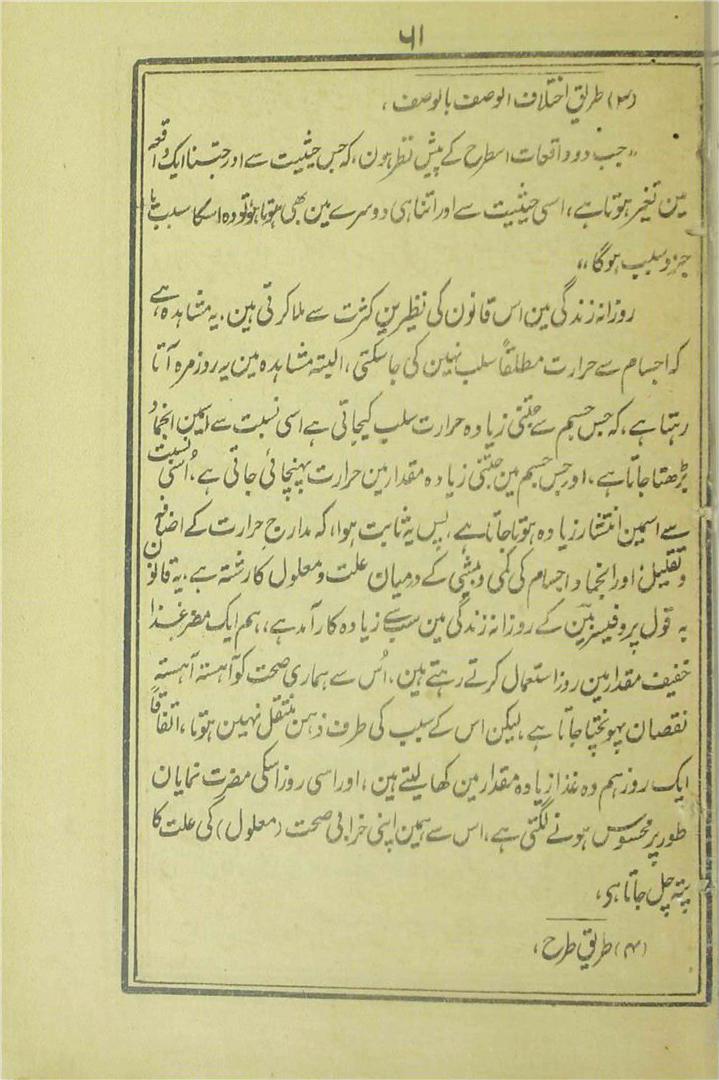 ۶۱
(۳) طریق اختلاف الوصف بالوصف،
”جب دو واقعات اسطرح کے پیش نظر ہون، کہ جس حیثیت سے اور جتنا ایک واقعہ
مین تغیر ہوتا ہے، اسی حیثیت سے اور اتنا ہی دوسرے مین بھی ہوتا ہو تو وہ اسکا سبب یا
جزو سبب ہوگا“
روزانہ زندگی مین اس قانون کی نظیرین کثرت سے ملا کرتی ہین. یہ مشاہدہ ہے
کہ اجسام سے حرارت مطلقاً سلب نہین کی جاسکتی، البتہ مشاہدہ مین یہ روزمرہ آتا
رہتا ہے، کہ جس جسم سے جتنی زیادہ حرارت سلب کیجاتی ہے اسی نسبت سے اسمین انجماد
بڑھتا جاتا ہے، اور جس جسم مین جتنی زیادہ مقدار مین حرارت پہنچائی جاتی ہے، اُسی نسبت
سے اسمین انتشار زیادہ ہوتا جاتا ہے، پس یہ ثابت ہوا، کہ مدارج حرارت کے اضافہ
و تقلیل اور انجماد اجسام کی کمی و بیشی کے درمیان علت و معلول کا رشتہ ہے. یہ قانون
بہ قول پروفیسر بین کے روزانہ زندگی مین سب سے زیادہ کارآمد ہے، ہم ایک مضر غذا
خفیف مقدار مین روز استعمال کرتے رہتے ہین، اُس سے ہماری صحت کو آہستہ آہستہ
نقصان پہونچتا جاتا ہے، لیکن اس کے سبب کی طرف ذہن منتقل نہین ہوتا، اتفاقاً
ایک روز ہم وہ غذا زیادہ مقدار مین کھا لیتے ہین، اور اسی روز اسکی مضرت نمایان
طور پر محسوس ہونے لگتی ہے، اس سے ہمین اپنی خرابی صحت (معلول) کی علت کا
پتہ چل جاتا ہی،
(۴) طریق طرح،